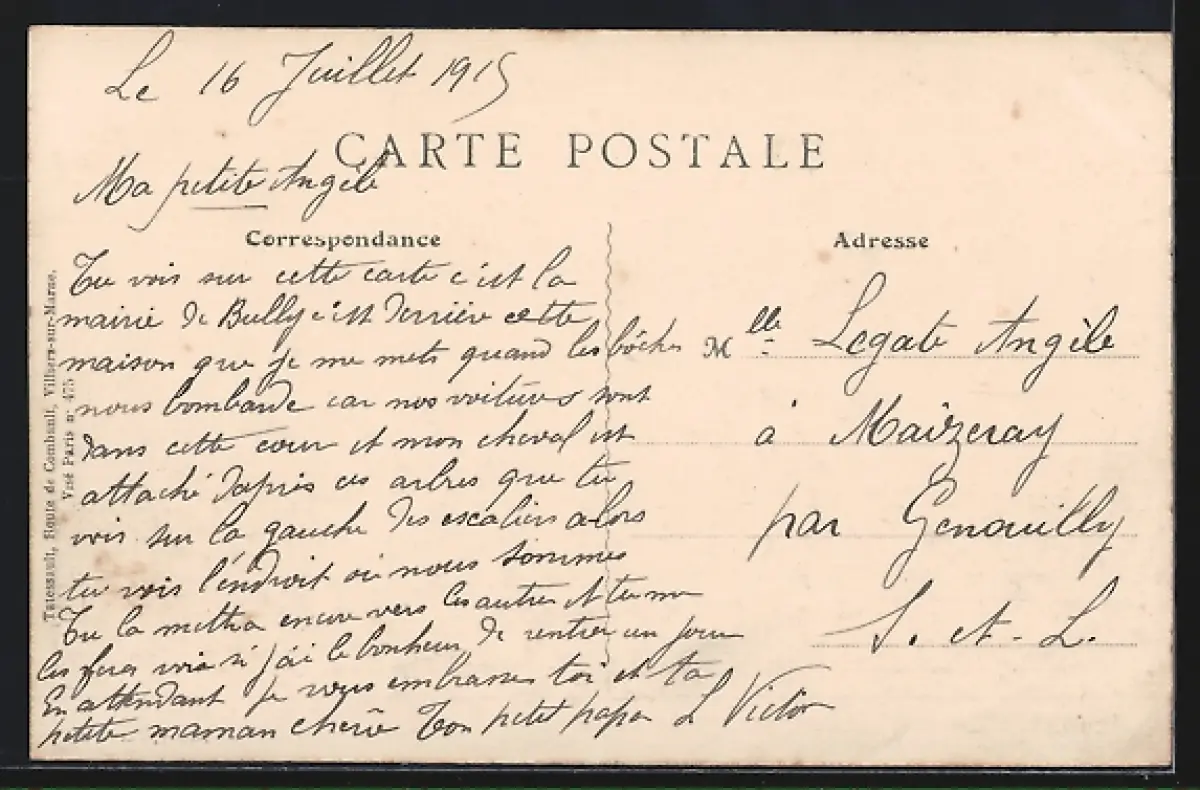 Le 16 Juillet 1915
CARTE POSTALE
Ma petite Angèle
Correspondance
Tu vois sur cette carte c'est la
mairie de Bully c'est derrière cette
maison que je me mets quand les bôches
nous bombarde car nos voitures sont
dans cette cour et mon cheval est
attaché daprès ces arbres que tu
vois sur la gauche des escaliers alors
tu vois l'endroit où nous sommes
Tu la mettra encore vers les autres et tu me
les feras voir si j'ai le bonheur de rentrer un jour
En attendant je vous embrasse toi et ta
petite maman chérie Ton petit papa L Victor
Adresse
Mlle Legate Angèle
à Maizeray
par Genouilly
S. et - L.
Route de Combault, Villiers-sur-Marne.
Visé Paris n° 475